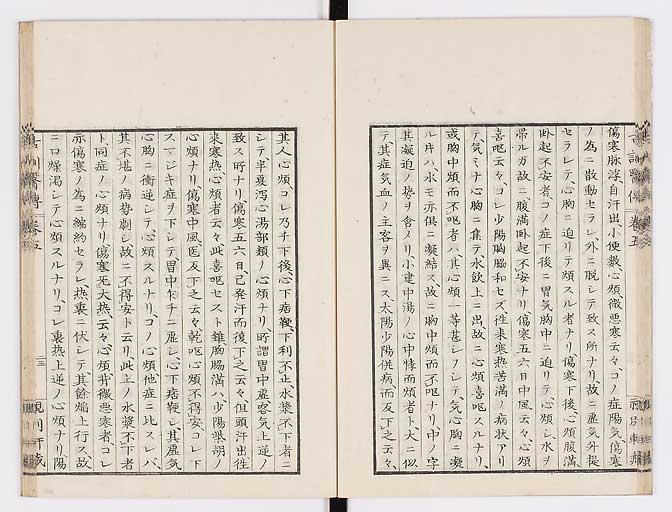 傷寒脉浮自汗出小便数心煩微悪寒云々コノ症陽気傷寒
ノ為ニ散動セラレ外ニ脱シテ致ス所ナリ故ニ虚気外提
セラレテ心胸ニ迫リテ煩スル者ナリ傷寒下後心煩腹満
卧起不安者コノ症下後ニ胃気胸中ニ迫リテ心煩シ水ヲ
帯ルガ故ニ腹満卧起不安ナリ傷寒五六日中風云々心煩
喜嘔云々コレ少陽胸脇和セズ往来寒熱苦満ノ病状アリ
テ気ミナ心胸ニ集テ水飲上ニ出故ニ心煩喜嘔スルナリ
或胸中煩而不嘔者ハ其心煩一等甚シフシテ気心胸ニ凝
ルキハ水モ亦倶ニ凝結ス故ニ胸中煩而不嘔ナリ中ノ字
其凝迫ノ势ヲ含メリ小建中湯ノ心中悸而煩者ト大ニ似
テ其症気血ノ主客ヲ異ニス太陽少陽併病而反下之云々
其人心煩コレ乃チ下後心下痞鞕下利不止水漿不下者ニ
シテ半夏瀉心湯部類ノ心煩ナリ所謂胃中虚客気上逆ノ
致ス所ナリ傷寒五六日已発汗而復下之云々但頭汗出往
来寒熱心煩者云々此喜嘔セスト雖胸脇満ハ少陽柴胡ノ
スマジキ症ヲ下シテ胃中乍チニ虚シ心下痞鞕シ其虚気
心胸ニ衝逆シテ心煩スルナリコノ心煩他症ニ比スレバ
其不堪ノ病势劇シ故ニ不得安ト云リ此上ノ水漿不下者
ト同症ノ心煩ナリ傷寒无大熱云々心煩背微悪寒者コレ
亦傷寒ノ為ニ緬約セラレ熱裏ニ伏シテ其餘焔上行ス故
ニ口燥渇シテ心煩スルナリコレ裏熱上逆ノ心煩ナリ陽